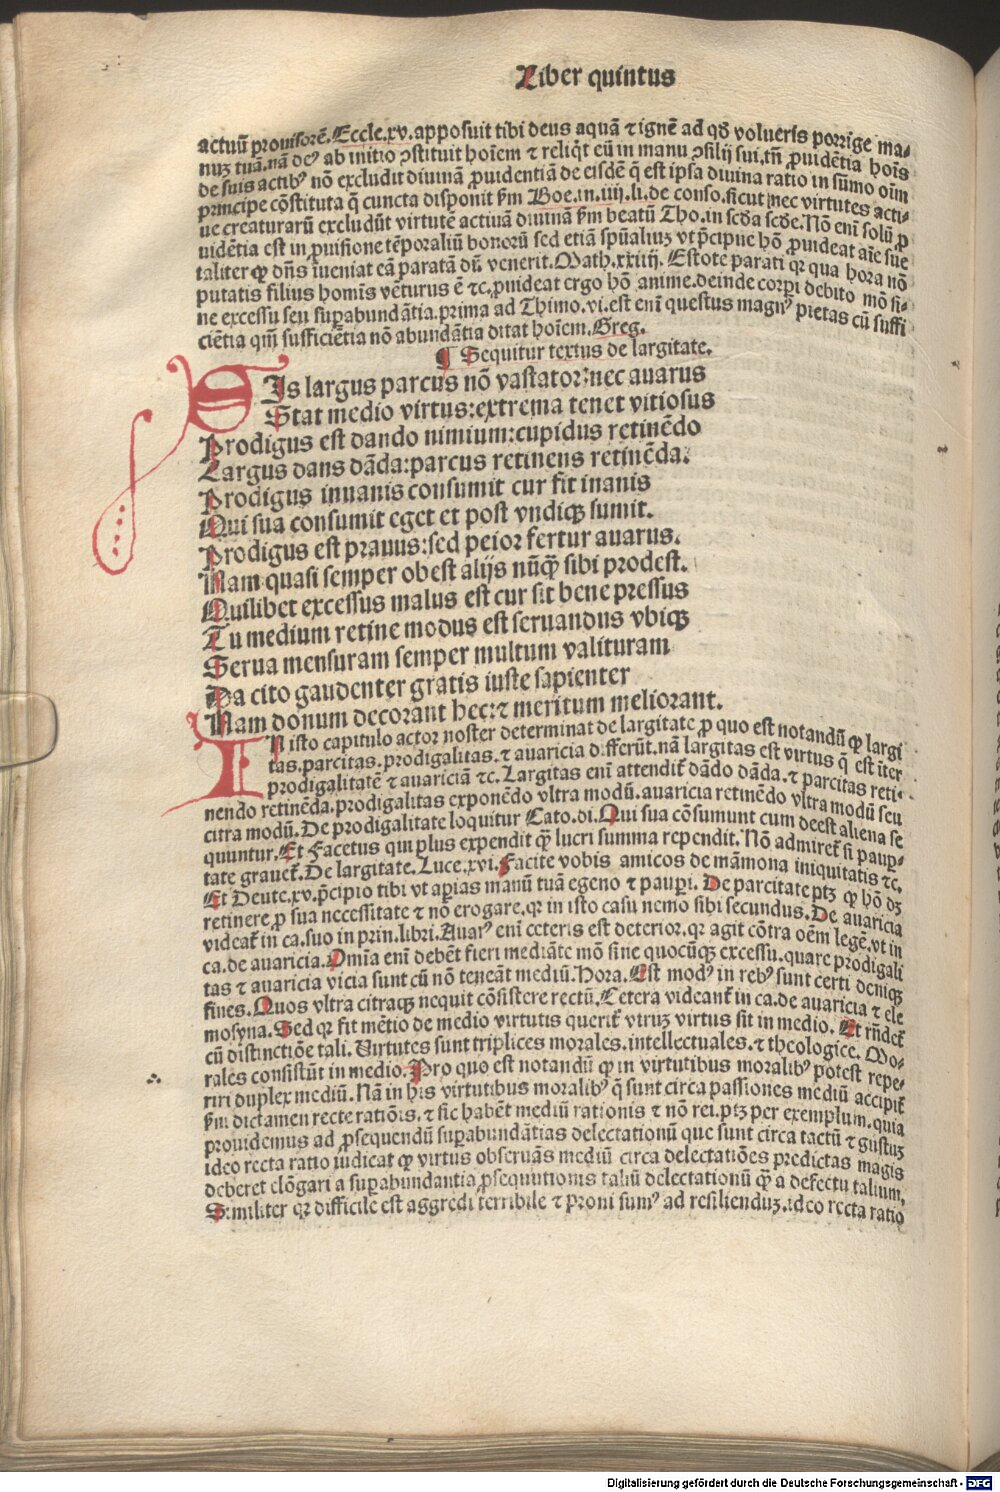 Liber quintus
actuū prouisorē. Eccle.xv. apposuit tibi deus aquā ⁊ ignē ad qđ volueris porrige ma-
nuꝫ tuā. nā deꝰ ab initio ꝯstituit hoīem ⁊ reliqͥt eū in manu ꝯsilij sui. tñ ꝓuidētia hoīs
de suis actibꝰ nō excludit diuinā ꝓuidentiā de eisdē q̄ est ipsa diuina ratio in sūmo oīm
principe cōstituta q̄ cuncta disponit ẜm Boe. in .iiij. li. de conso. sicut nec virtutes acti-
ue creaturarū excludūt virtutē actiuā diuinā ẜm beatū Tho. in scďa scďe. Nō enī solū ꝓ
uidētia est in ꝓuisione tēporaliū bonorū sed etiā spūaliuꝫ vt p̄cipue hō ꝓuideat aīe sue
taliter ꝙ dñs īueniat eā paratā dū venerit. Math.xxiiij. Estote parati qꝛ qua hora nō
putatis filius homīs vēturus ē ⁊c. ꝓuideat ergo hō anime. deinde corpi debito mō si-
ne excessu seu suꝑabundātia. prima ad Thimo.vi. est enī questus magnꝰ pietas cū suffi
ciētia qm̄ sufficiētia nō abundātia ditat hoīem. Greg.
¶ Sequitur textus de largitate.
SIs largus parcus nō vastator: nec auarus
Stat medio virtus: extrema tenet vitiosus
Prodigus est dando nimium: cupidus retinēdo
Largus dans dāda: parcus retinens retinēda.
Prodigus inuanis consumit cur fit inanis
Qui sua consumit eget et post vndiqꝫ sumit.
Prodigus est prauus: sed peior fertur auarus.
Nam quasi semper obest alijs nūqꝫ sibi prodest.
Quilibet excessus malus est cur sit bene pressus
Tu medium retine modus est seruandus vbiqꝫ
Serua mensuram semper multum valituram
Da cito gaudenter gratis iuste sapienter
Nam donum decorant hec: ⁊ meritum meliorant.
IN isto capitulo actor noster determinat de largitate ꝓ quo est notandū ꝙ largi
tas. parcitas. prodigalitas. ⁊ auaricia differūt. nā largitas est virtus q̄ est īter
prodigalitatē ⁊ auariciā ⁊c. Largitas enī attendit᷑ dādo dāda. ⁊ parcitas reti-
nendo retinēda. prodigalitas exponēdo vltra modū. auaricia retinēdo vltra modū seu
citra modū. De prodigalitate loquitur Cato. di. Qui sua cōsumunt cum deest aliena se
quuntur. Et Facetus qui plus expendit qꝫ lucri summa rependit. Nō admiret᷑ si pauꝑ-
tate grauet᷑. De largitate. Luce.xvi. Facite vobis amicos de māmona iniquitatis ⁊c.
Et Deute.xv. p̄cipio tibi vt aꝑias manū tuā egeno ⁊ pauꝑi. De parcitate ptꝫ ꝙ hō dꝫ
retinere ꝓ sua necessitate ⁊ nō erogare. qꝛ in isto casu nemo sibi secundus. De auaricia
videat᷑ in ca. suo in prin. libri. Auarꝰ enī ceteris est deterior. qꝛ agit cōtra oēm legē. vt in
ca. de auaricia. Omīa enī debēt fieri mediāte mō sine quocūqꝫ excessu. quare prodigali
tas ⁊ auaricia vicia sunt cū nō teneāt mediū. Hora. Est modꝰ in rebꝰ sunt certi deniqꝫ
fines. Quos vltra citraqꝫ nequit cōsistere rectū. Cetera videant᷑ in ca. de auaricia ⁊ ele
mosyna. Sed qꝛ fit mētio de medio virtutis querit᷑ vtruꝫ virtus sit in medio. Et rñdet᷑
cū distinctiōe tali. Virtutes sunt triplices morales. intellectuales. ⁊ theologice. Mo-
rales consistūt in medio. Pro quo est notandū ꝙ in virtutibus moralibꝰ potest repe-
riri duplex mediū. Nā in his virtutibus moralibꝰ q̄ sunt circa passiones mediū accipit᷑
ẜm dictamen recte ratiōis. ⁊ sic habēt mediū rationis ⁊ nō rei. ptꝫ per exemplum. quia
prouidemus ad ꝓsequendū suꝑabundātias delectationū que sunt circa tactū ⁊ gustuꝫ
ideo recta ratio iudicat ꝙ virtus obseruās mediū circa delectatiōes predictas magis
deberet elōgari a suꝑabundantia ꝓsequutionis taliū delectationū qꝫ a defectu talium.
Similiter qꝛ difficile est aggredi terribile ⁊ proni sumꝰ ad resilienduꝫ. ideo recta ratio
Digitalisierung gefördert durch die Deutsche Forschungsgemeinschaft - DFG